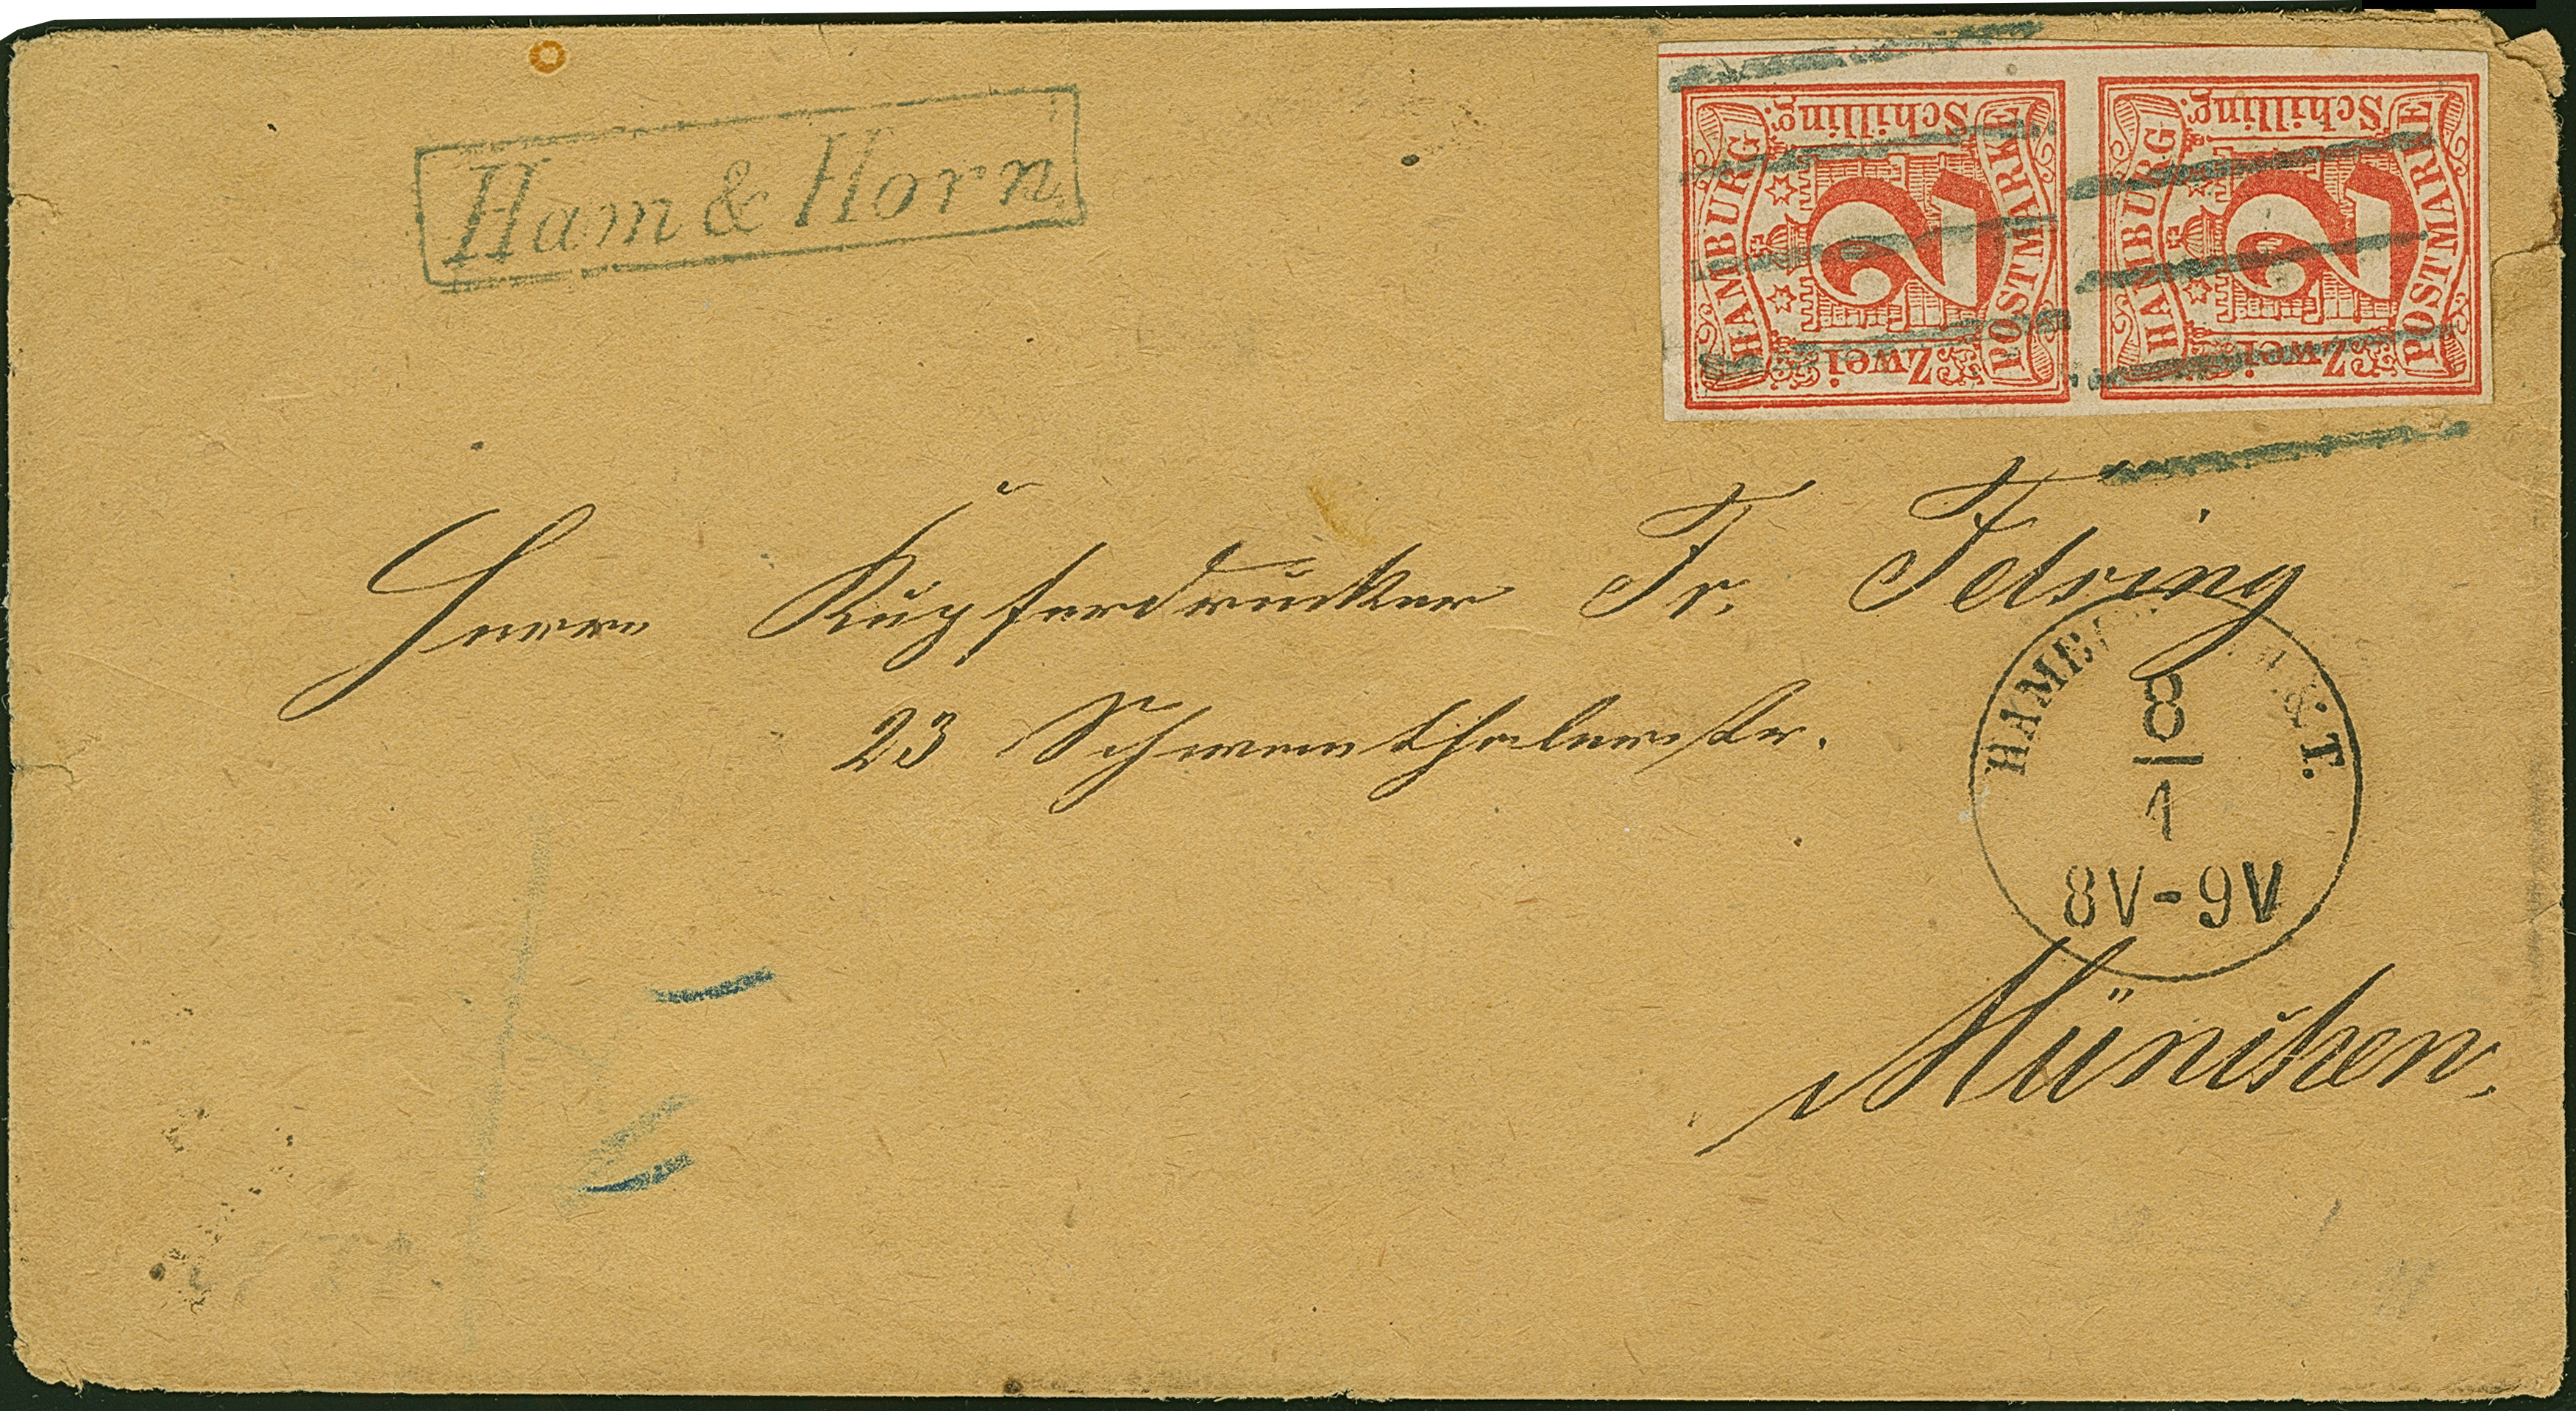 Ham & Horn
Schilling. Schilling.
HAMBURG POSTMARKE HAMBURG POSTMARKE
2 2
Zwei Zwei
Herrn Kupferdrucker Fr. Felsing
23 Schwanthalerstr.
T.
8
1
8V-9V
München.